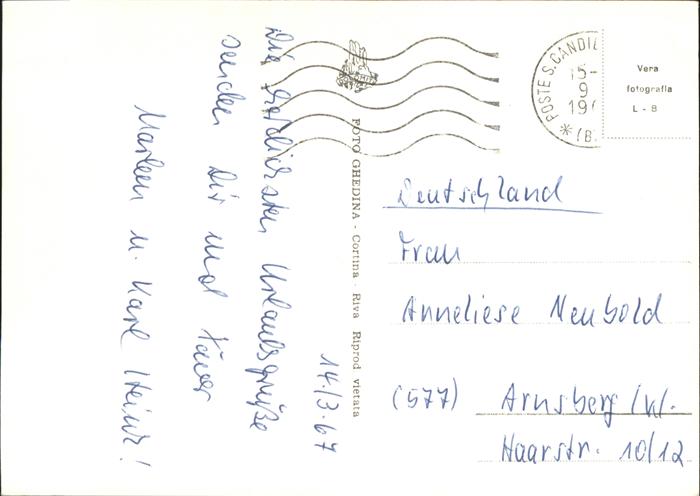 Die herzlichsten Urlaubsgrüße
senden Dir und
Marleen u. Karl Heinz!
14./3.67
FOTO GHEDINA - Cortina - Riva Riprod. vietata
POSTE S. CANDI
15-
9
19
* (B
Vera
fotografia
L - B
Deutschland
Frau
Anneliese Neubold
(577) Arnsberg/W.
Haarstr. 10/12